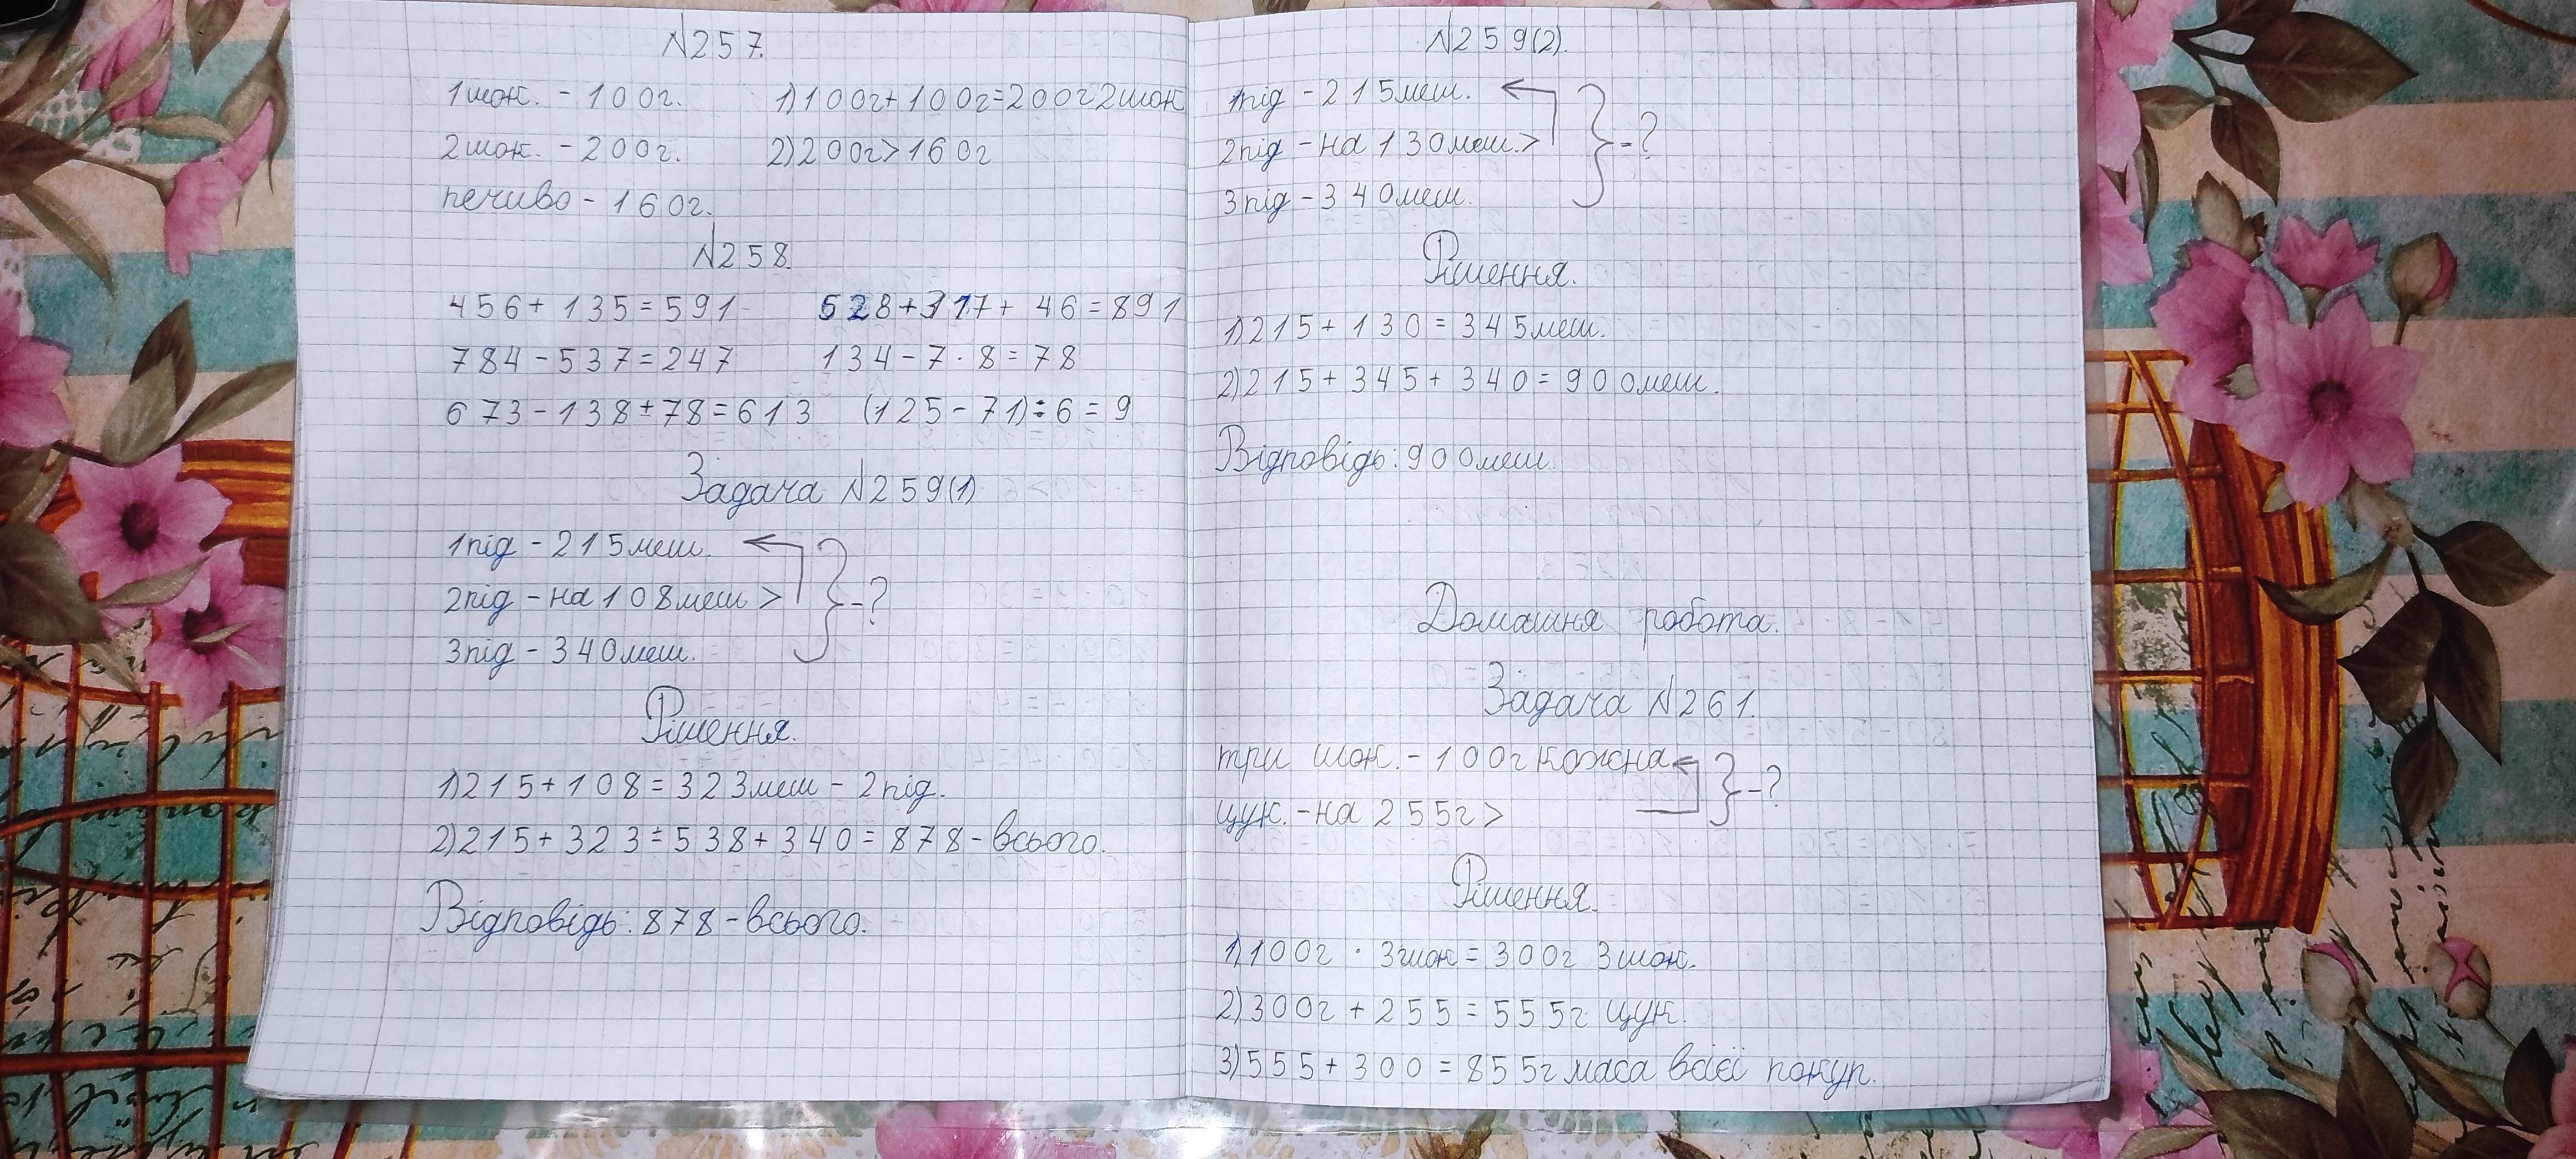 №257.
1шок. - 100г. 1)100г+100г=200г2шок
2шок. - 200г. 2)200г>160г
печиво - 160г.
№258.
456+135=591 528+317+46=891
784-537=247 134-7·8=78
673-138+78=613 (125-71):6=9
Задача №259(1)
1під - 215меш.
2під - на 108меш > }-?
3під - 340меш.
Рішення.
1)215+108=323меш - 2під.
2)215+323=538+340=878-всього.
Відповідь: 878-всього.
№259(2).
1під - 215меш.
2під - на 130меш.> }-?
3під - 340меш.
Рішення.
1)215+130=345меш.
2)215+345+340=900меш.
Відповідь: 900меш.
Домашня робота.
Задача №261.
три шок. - 100г кожна }-?
цук. - на 255г >
Рішення.
1)100г · 3шок = 300г 3шок.
2)300г + 255 = 555г цук.
3)555+300=855г маса всієї покуп.